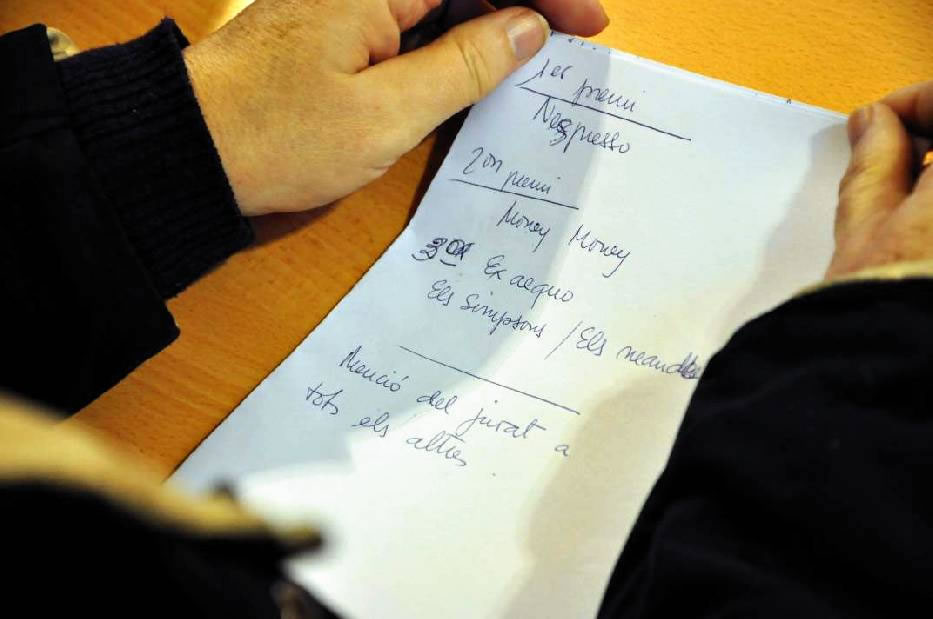 1er premi
Nespresso
2on premi
Money Money
3er Ex aequo
Els Simpsons / Els
Menció del jurat a
tots els altres.